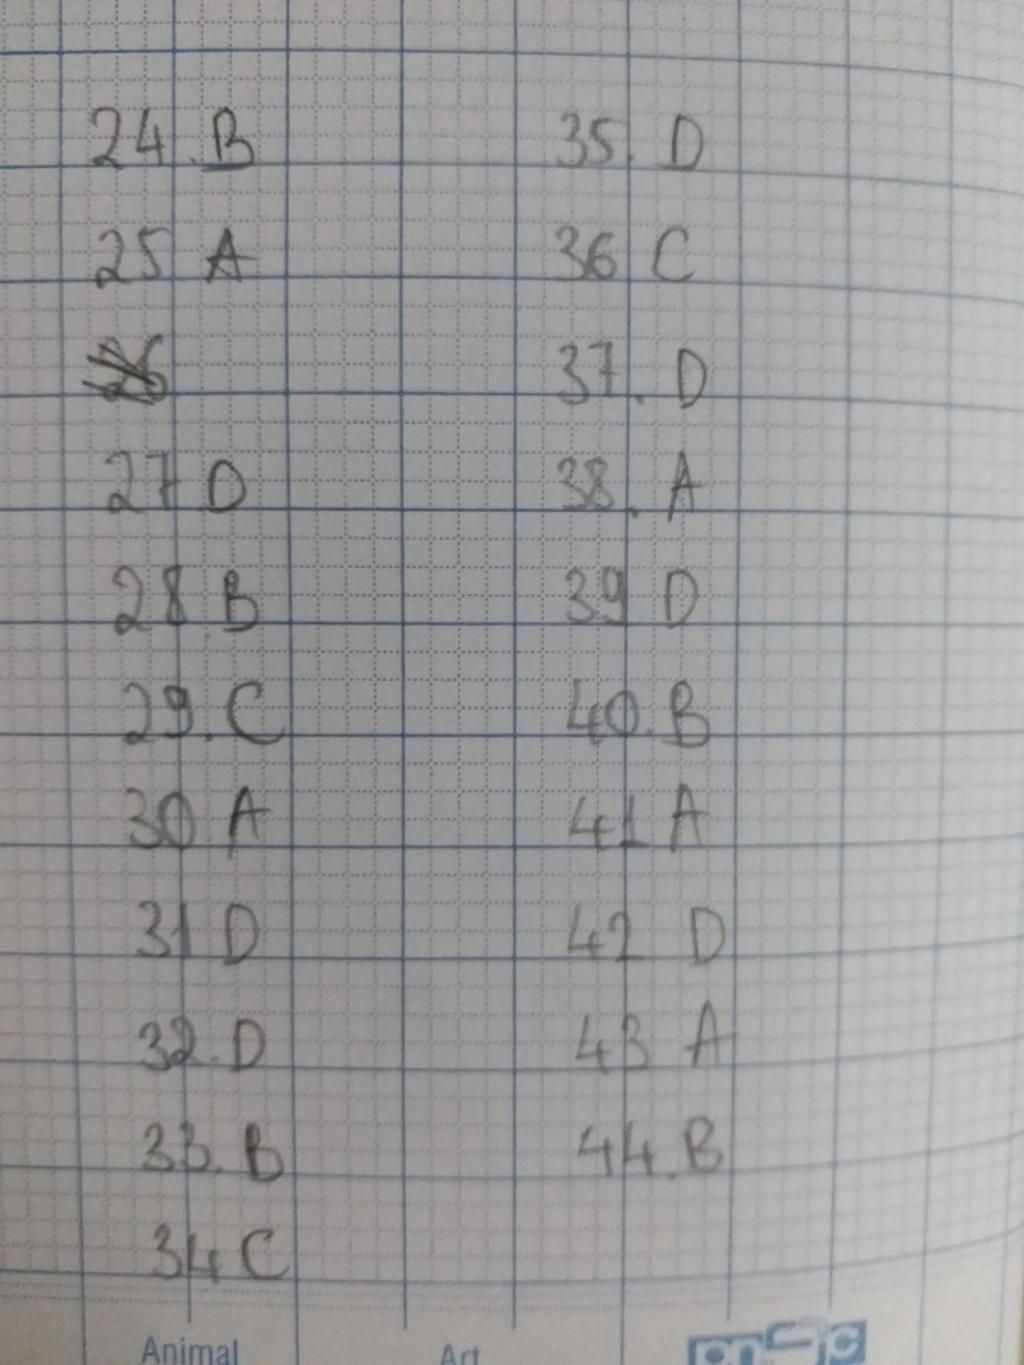 24. B
25 A
26
27 D
28 B
29. C
30 A
31 D
32. D
33. B
34 C
35. D
36 C
37. D
38. A
39 D
40. B
41 A
42 D
43 A
44. B
Animal
Art